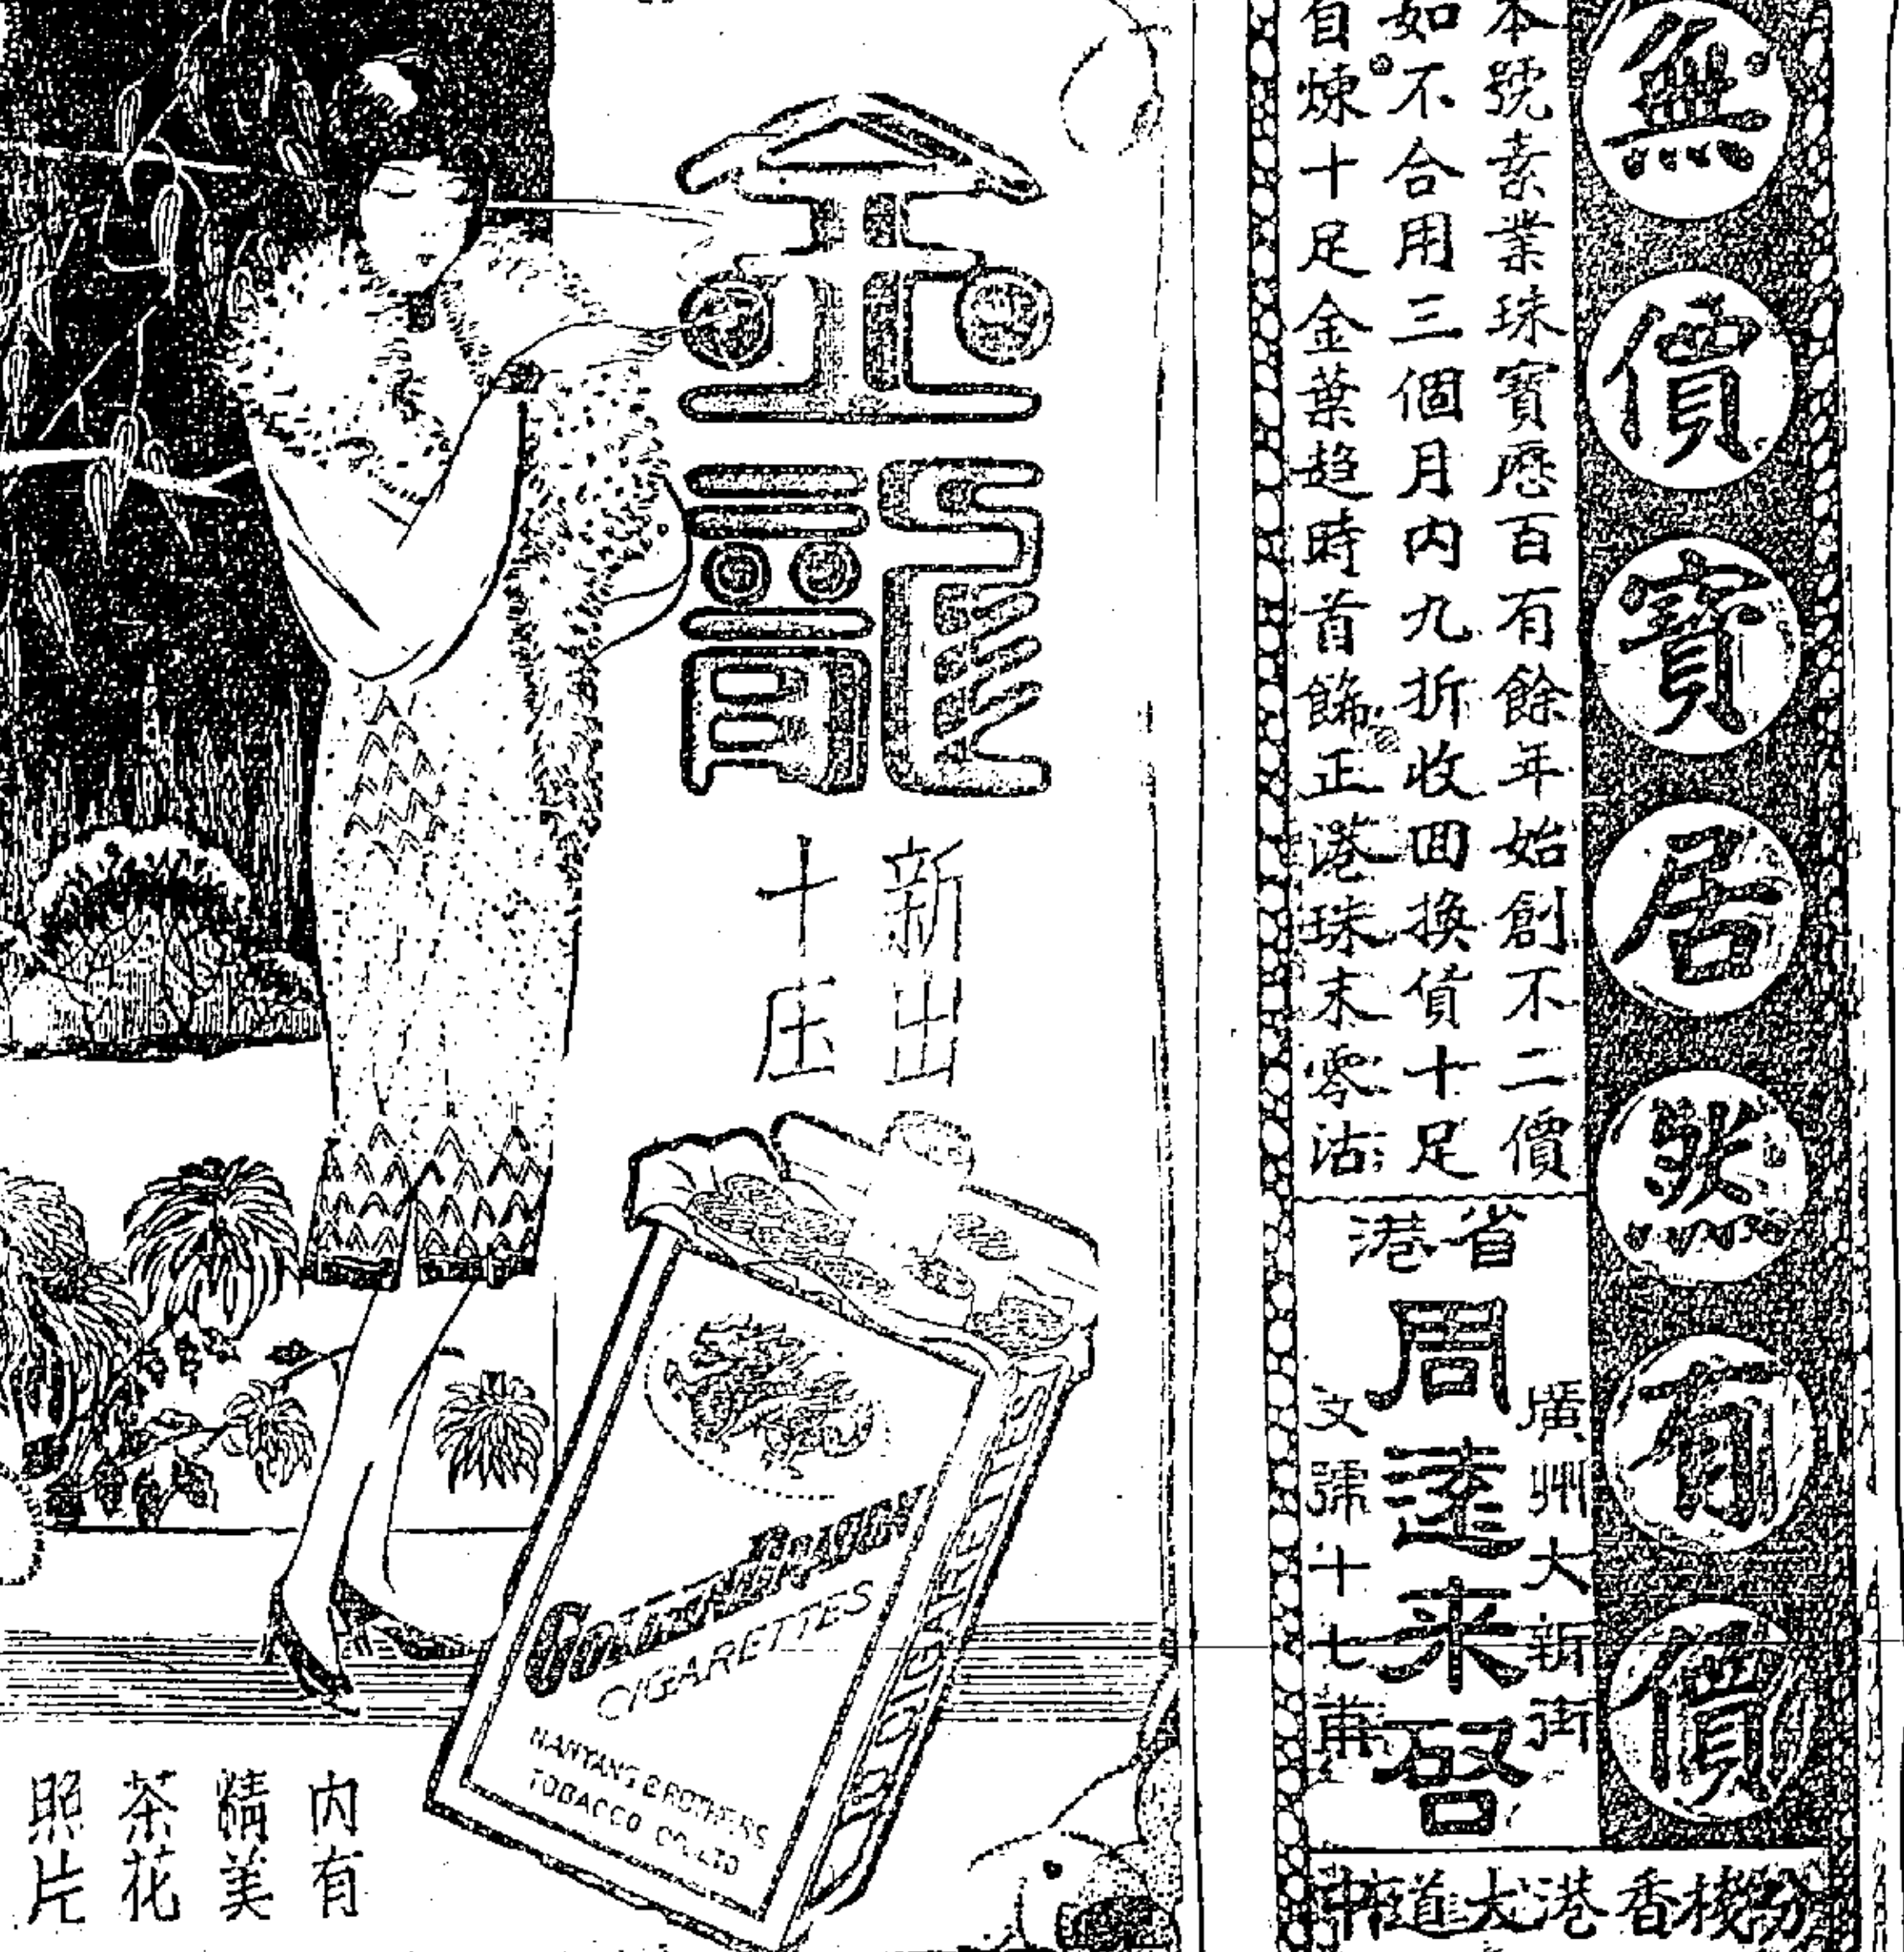 無價寶居然有價
本號素業珠寶歷百有餘年始創不二價
如不合用三個月內九折收回換貨十足
自煉十足金葉趨時首飾正港珠末零沽
省港
周逵來啓
廣州大新街
文號十七甫
分棧香港大道中
金龍
新出
十庄
GOLDEN DRAGON
CIGARETTES
NANYANG BROTHERS
TOBACCO CO. LTD
內有
精美
茶花
照片